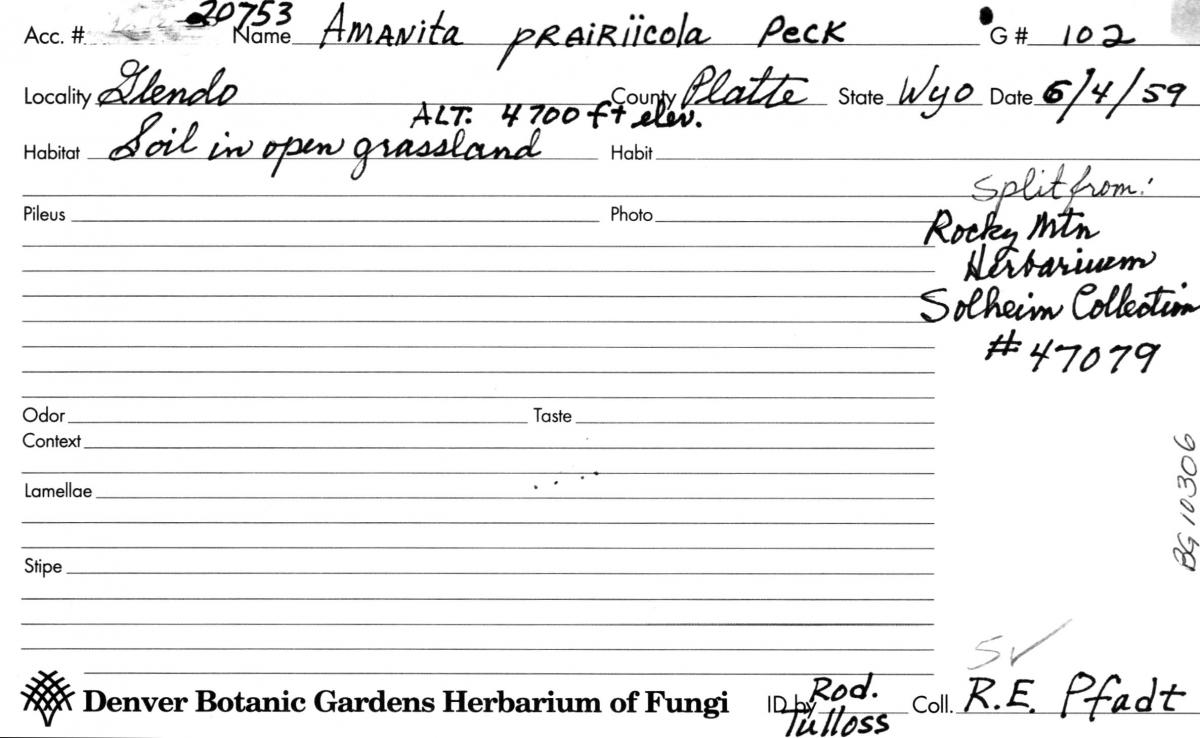 Acc. # 20753 Name Amanita prairiicola Peck G# 102
Locality Glendo County Platte State Wyo Date 6/4/59
ALT. 4700 ft elev.
Habitat Soil in open grassland Habit
Split from:
Pileus Photo
Rocky Mtn
Herbarium
Solheim Collection
# 47079
Odor Taste
Context
Lamellae
BG 10306
Stipe
Denver Botanic Gardens Herbarium of Fungi ID by Rod. Tulloss Coll. R.E. Pfadt